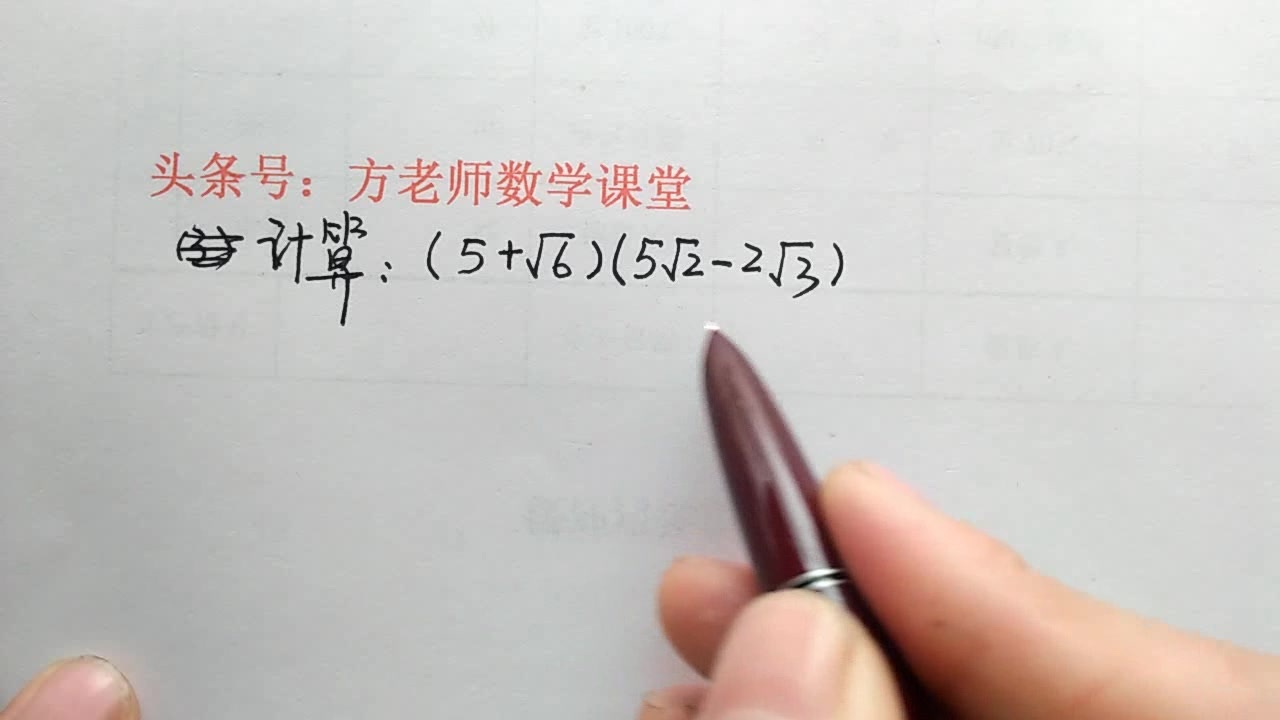 头条号：方老师数学课堂
计算：(5+√6)(5√2-2√3)